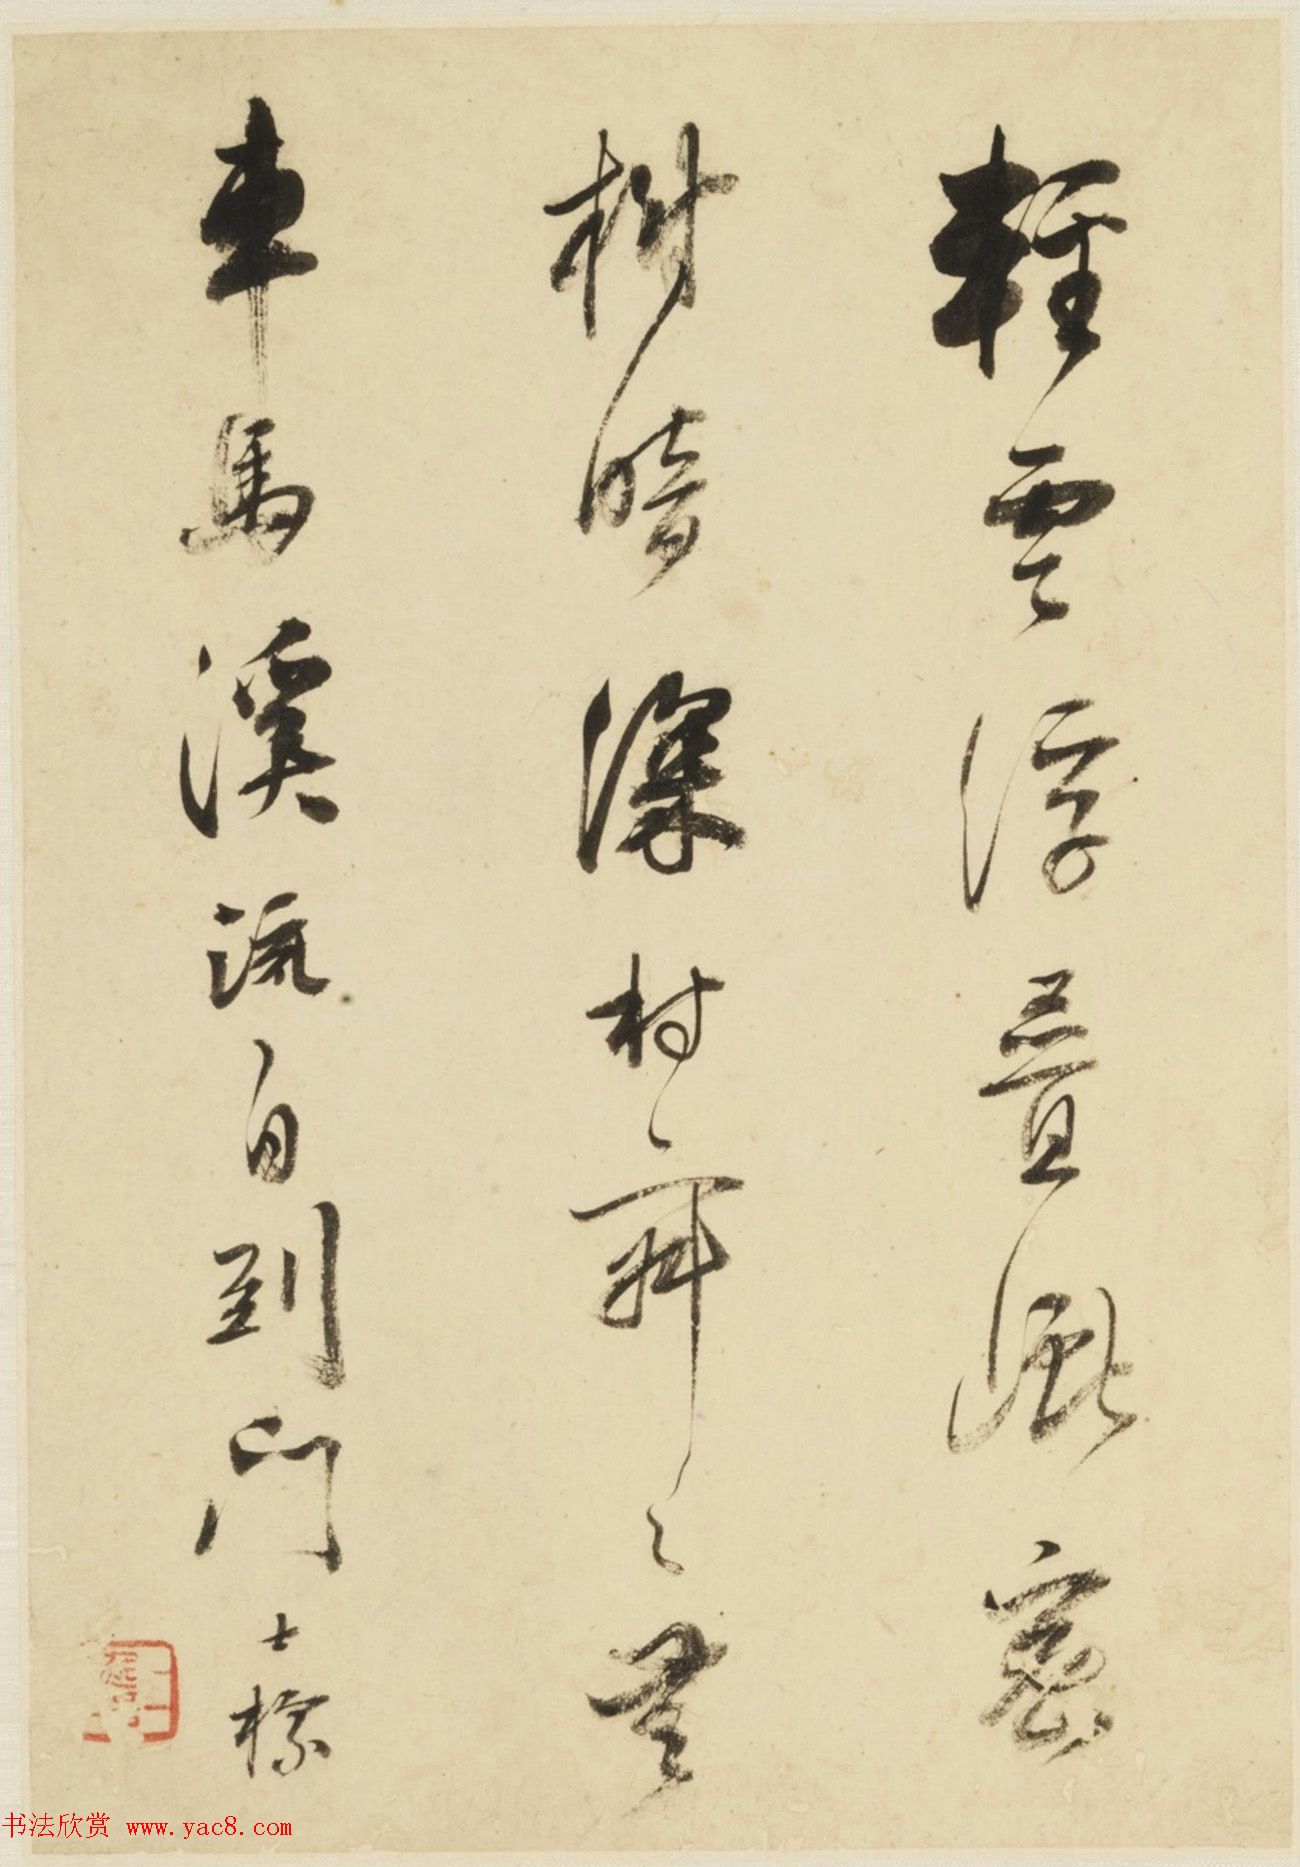 輕雲浮疊巘密
樹暗深村寂々無
車馬溪流自到門
士標
书法欣赏 www.yac8.com